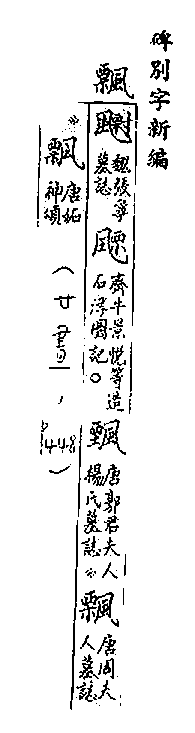 碑別字新編
飄
飃魏張寧墓誌
飃齊牛景悦等造石浮圖記。
飄唐郭君夫人楊氏墓誌。
飄唐周夫人墓誌
飄唐妬神頌
(廿畫,P448)